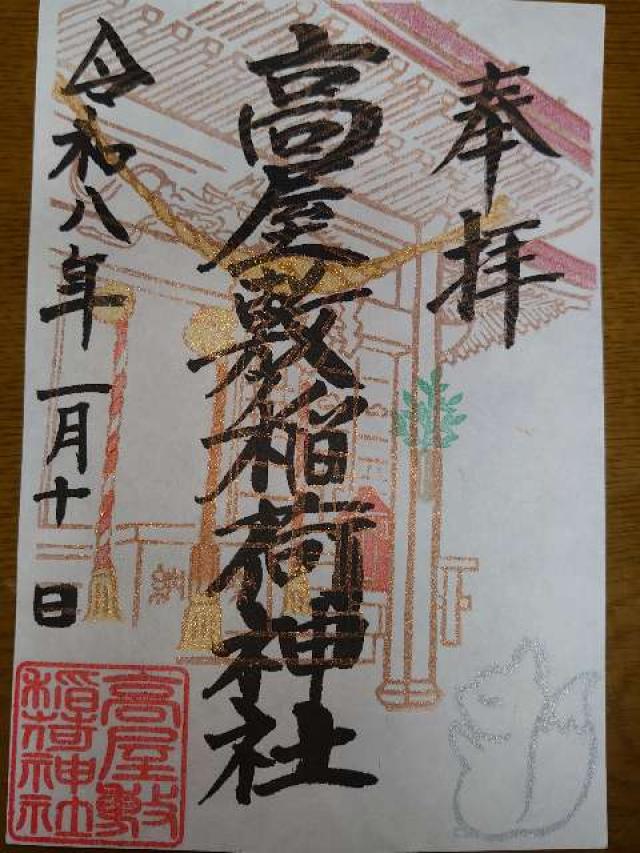 奉拝
高屋敷稲荷神社
令和八年一月十日
高屋敷
稲荷神社